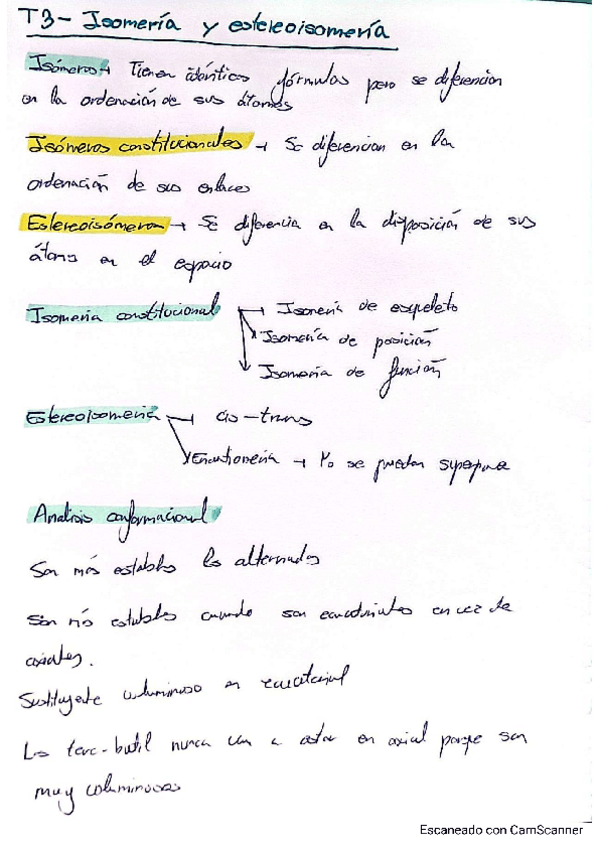 T3- Isomería y estereoisomería
Isómeros → Tienen idénticas fórmulas pero se diferencian
en la ordenación de sus átomos
Isómeros constitucionales → Se diferencian en la
ordenación de sus enlaces
Estereoisómeros → Se diferencia en la disposición de sus
átomos en el espacio
Isomería constitucional → Isomería de esqueleto
Isomería de posición
Isomería de función
Estereoisomería → cis-trans
Enantiomería → No se pueden superponer
Analisis conformacional
Son más estables los alternados
Son más estables cuando son ecuatoriales en vez de
axiales.
Sustituyente voluminoso en ecuatorial
Los terc-butil nunca van a estar en axial porque son
muy voluminosos
Escaneado con CamScanner